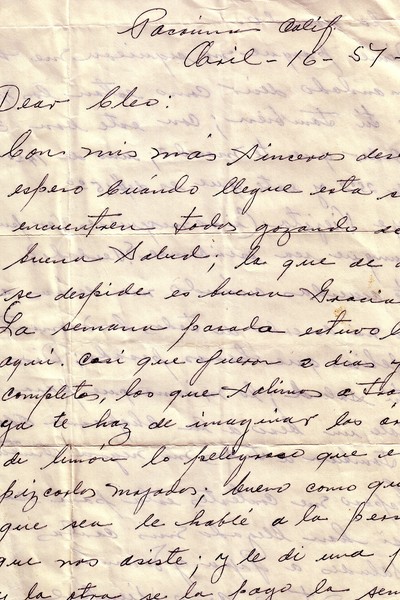 Pacoima Calif.
Abril - 16 - 57 -
Dear Cleo:
Con mis más sinceros dese
espero Cuándo llegue esta s
encuentren todos gozando de
buena Salud; la que de a
se despide es buena Gracia
La semana pasada estuvo l
aquí. casi que fueron 2 dias y
completos, los que salimos a tra
ya te haz de imaginar los ár
de limón lo peligroso que e
pizcarlos mojados; bueno como qui
que sea le hablé a la pers
que nos asiste; y le di una p
y la otra se la pago la sem